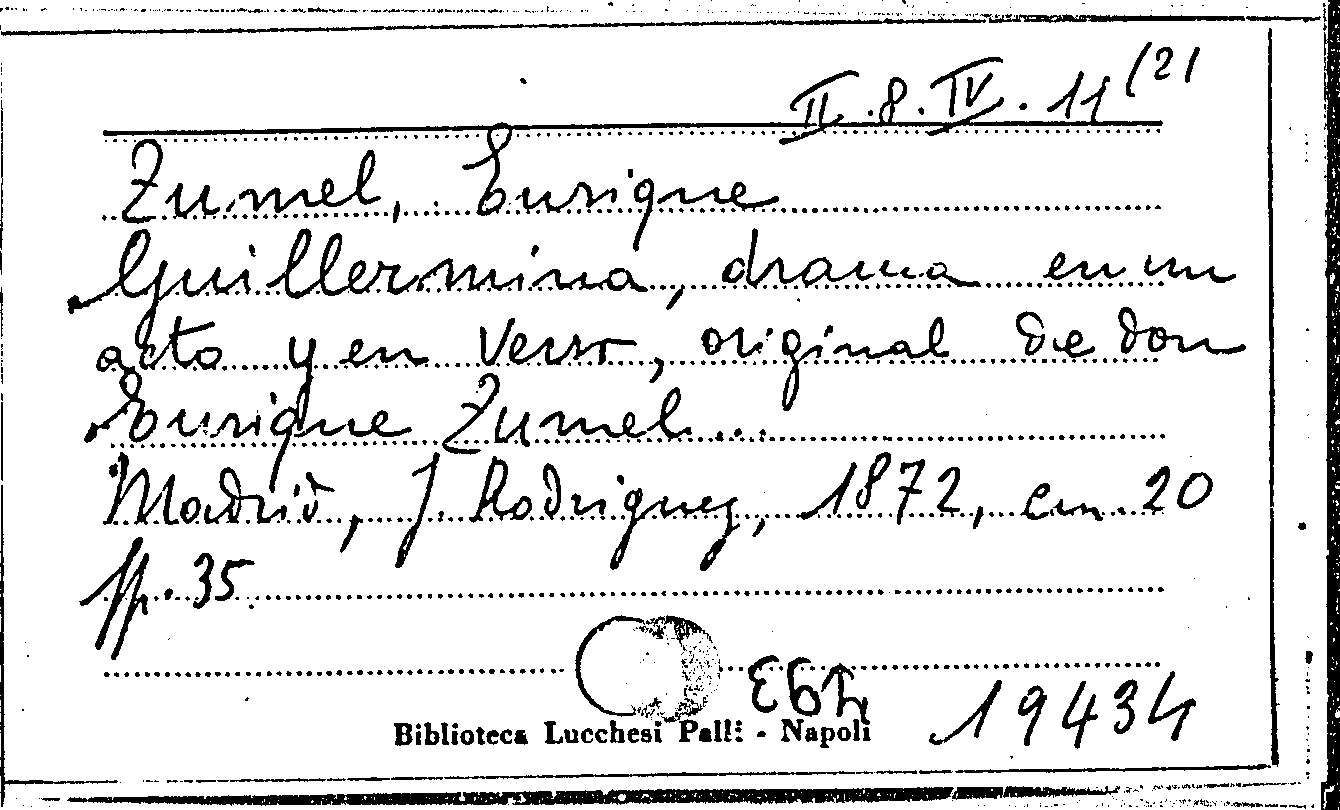 II.8.IV.11(21
Zumel, Enrique
Guillermina, drama en un
acto y en verso, original de don
Enrique Zumel...
Madrid, J. Rodriguez, 1872, cm. 20
pp. 35
19434
Biblioteca Lucchesi Palli - Napoli